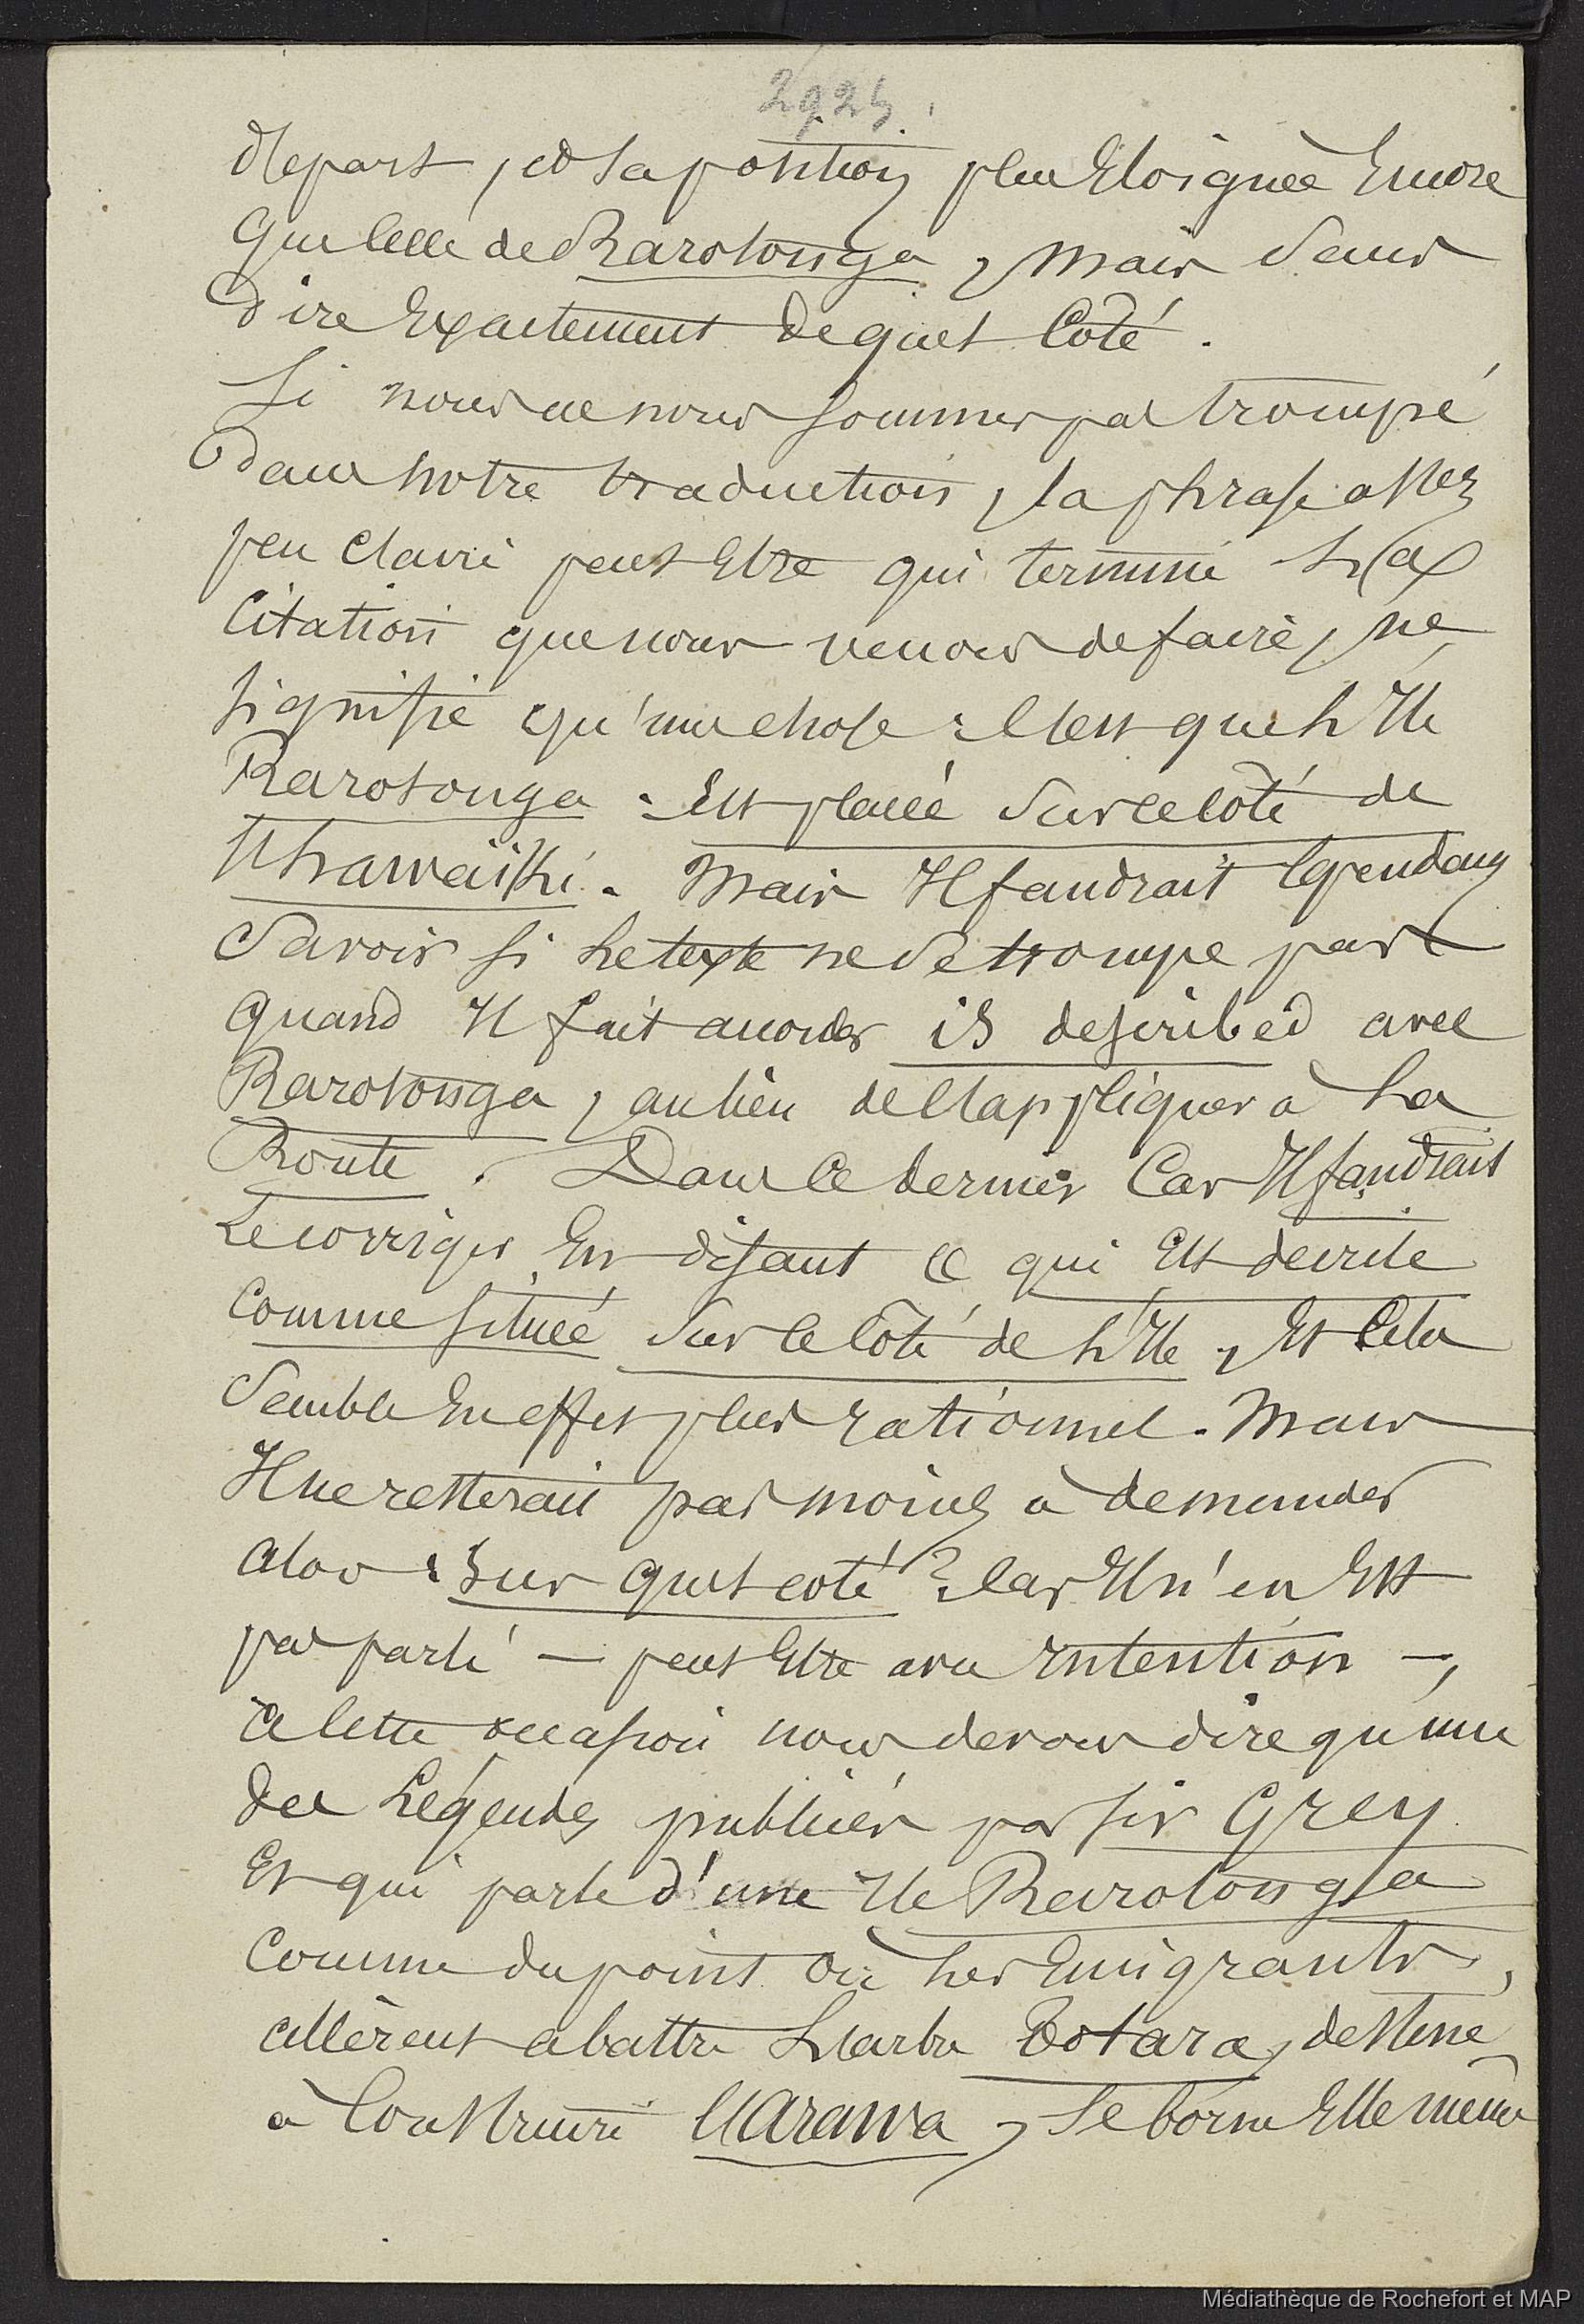 2925.
depart, et sa position plus Eloignée Encore
que Celle de Rarotonga, mais sans
dire Exactement de quel Coté.
Si nous ne nous sommes pas trompé
dans notre traduction, la phrase assez
peu Claire peut Etre qui termine la
Citation que nous venons de faire, ne
signifie qu'une chose : C'est que l'Ile
Rarotonga . Est placée sur le côté de
l'hawaïki. Mais Il faudrait Cependant
Savoir si le texte ne se trompe pas
quand Il fait accorder is described avec
Rarotonga, au lieu de l'appliquer a la
Route. Dans Ce dernier Cas Il faudrait
Le corriger En disant Ce qui Est decrite
Comme située sur le Côté de l'Ile, Et Cela
Semble En effet plus rationnel. Mais
Il ne resterait pas moins à demander
alors : sur quel coté ? Car Il n'en Est
pas parlé — peut Etre avec intention —,
a Cette occasion nous devons dire qu'une
des Légendes publiées par Sir Grey
Et qui parle d'une Ile Rarotonga
Comme du point où les Emigrants,
allèrent abattre L'arbre Totara, destiné
à Construire l'Arawa, se borne Elle même
Médiathèque de Rochefort et MAP